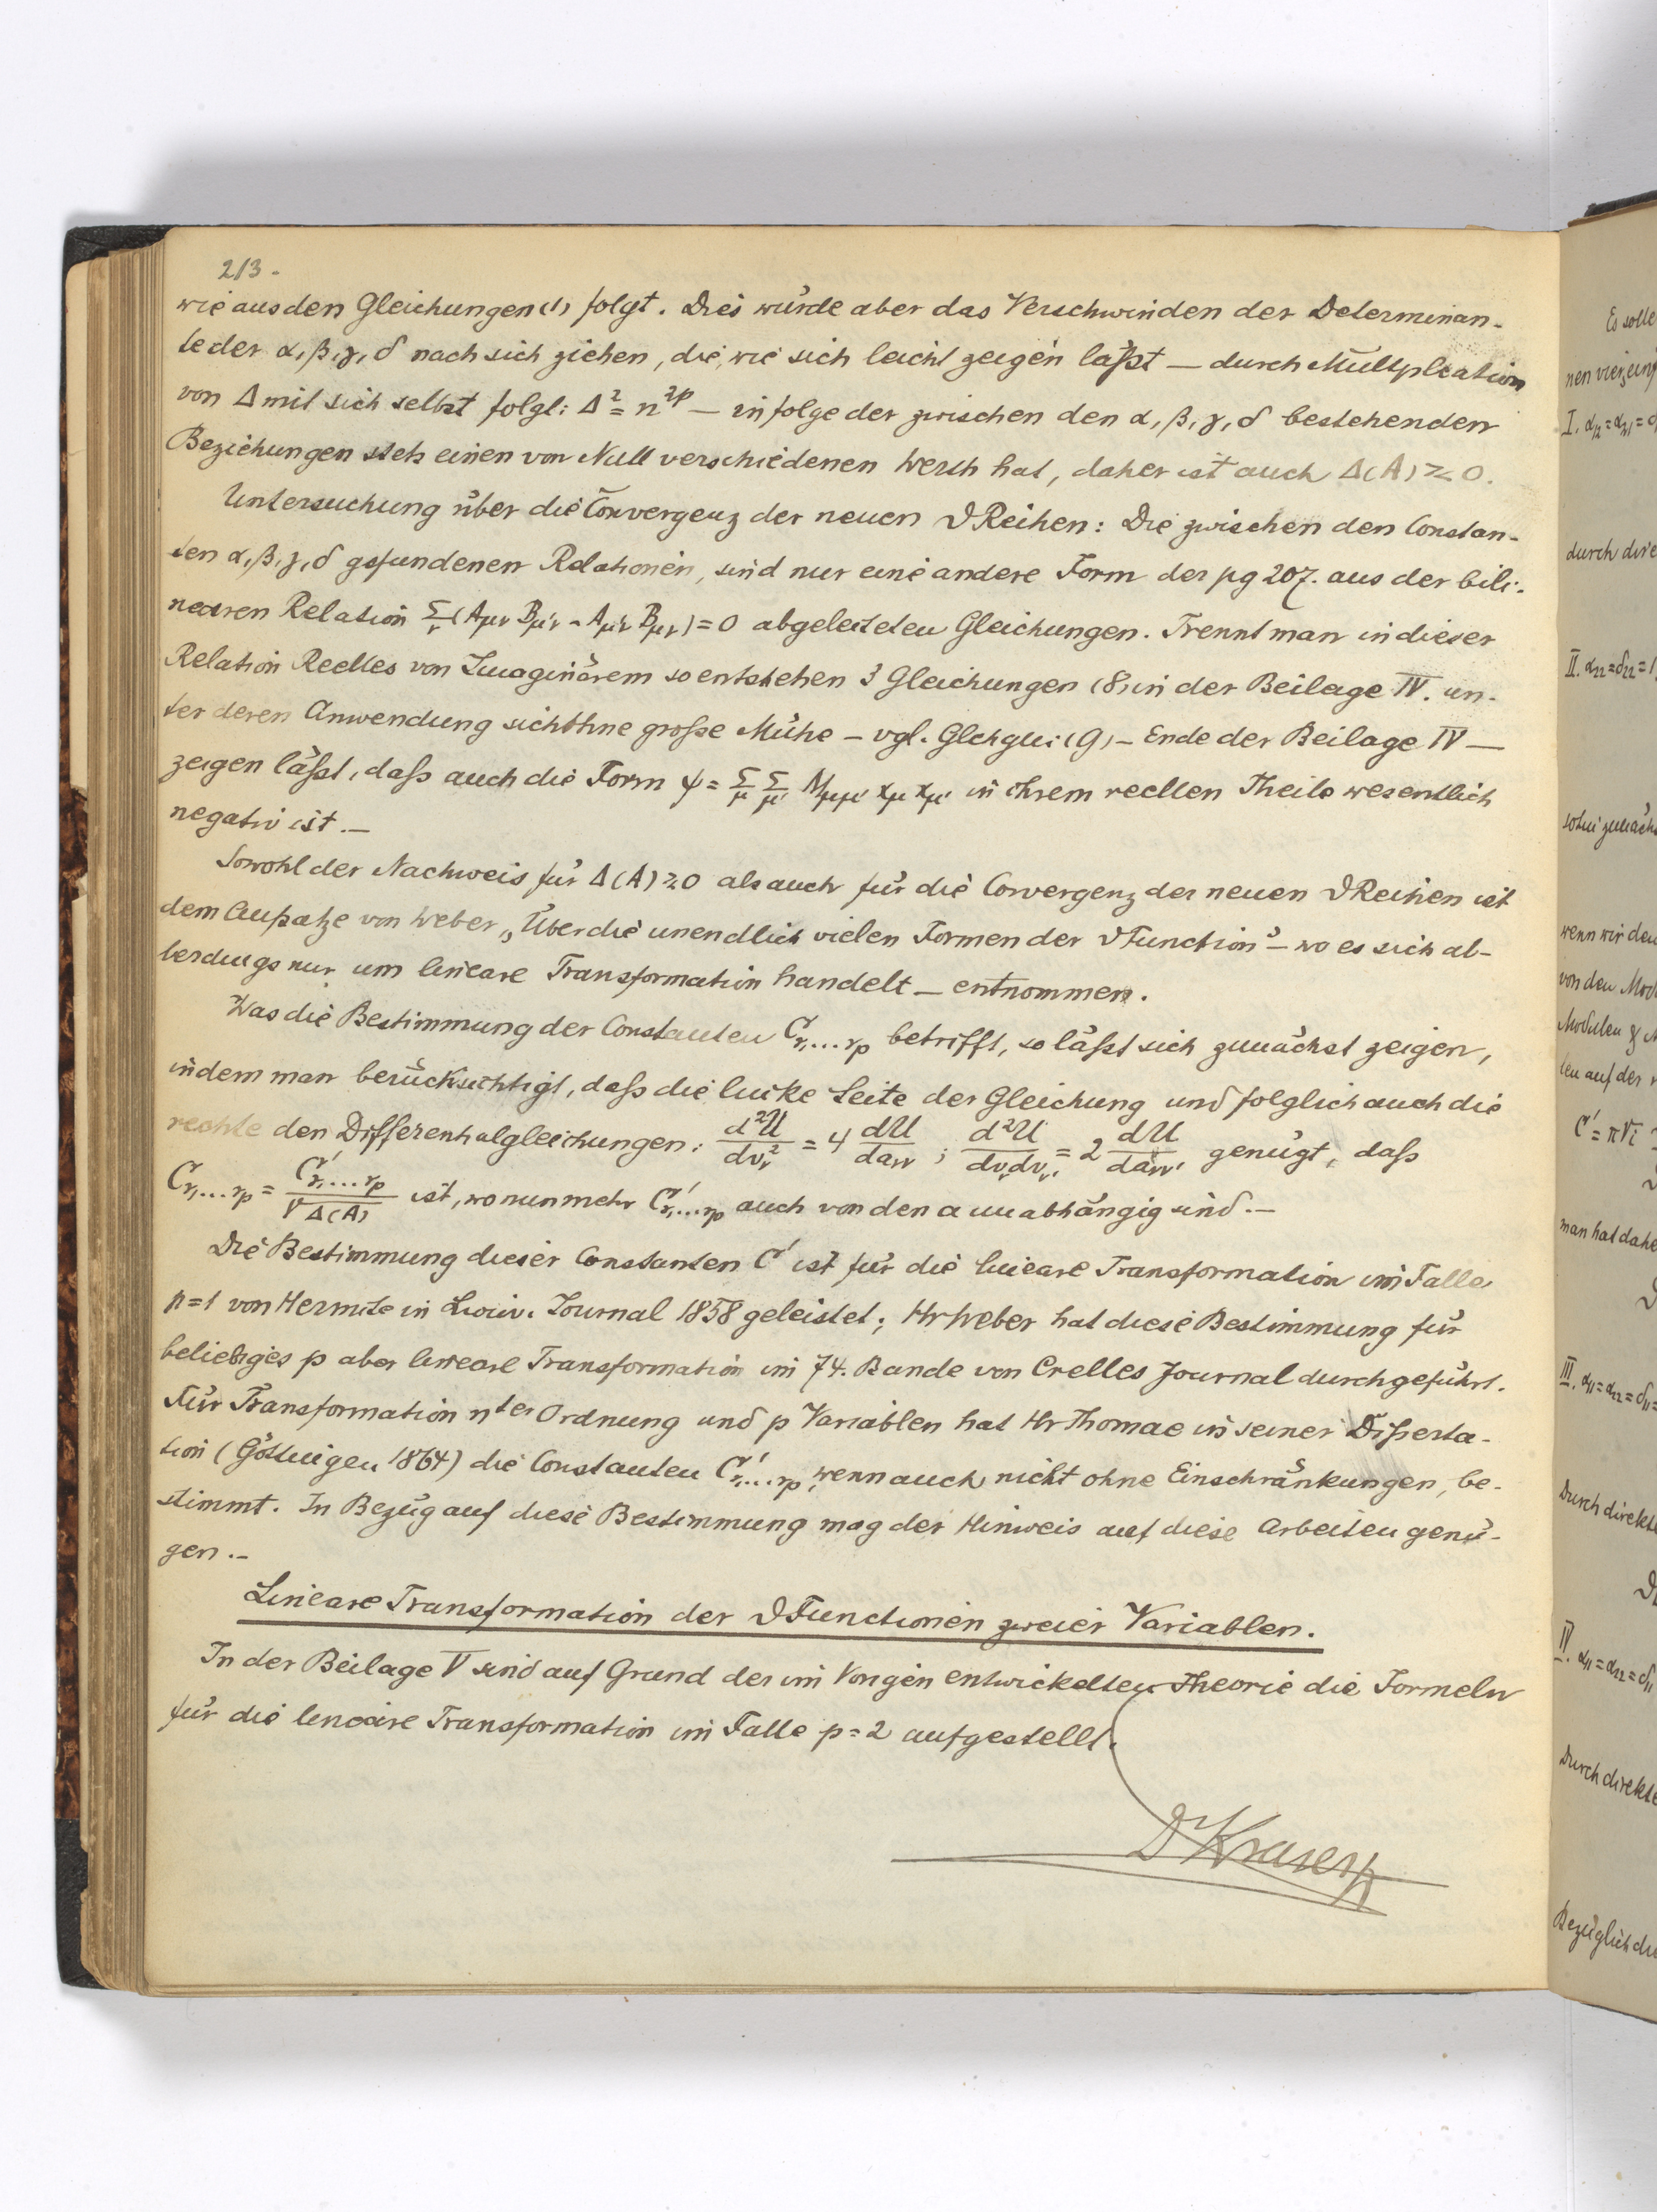 213.
wie aus den Gleichungen (1) folgt. Dies würde aber das Verschwinden der Determinan-
te der α, β, γ, δ nach sich ziehen, die, wie sich leicht zeigen läßt — durch Multiplication
von Δ mit sich selbst folgt: Δ² = n²ᵖ — in folge der zwischen den α, β, γ, δ bestehenden
Beziehungen stets einen von Null verschiedenen Werth hat, daher ist auch Δ(A) ≷ 0.
Untersuchung über die Convergenz der neuen ϑ Reihen: Die zwischen den Constan-
ten α, β, γ, δ gefundenen Relationen, sind nur eine andere Form der pg 207. aus der bili-
nearen Relation Σ_ν (A_μν B_μ'ν - A_μ'ν B_μν) = 0 abgeleiteten Gleichungen. Trennt man in dieser
Relation Reelles von Imaginärem so entstehen 3 Gleichungen (8) in der Beilage IV. un-
ter deren Anwendung sich ohne große Mühe — vgl. Glchgn: (9) — Ende der Beilage IV —
zeigen läßt, daß auch die Form ψ = Σ_μ Σ_μ' A'_μμ' x_μ x_μ' in ihrem reellen Theile wesentlich
negativ ist. —
Sowohl der Nachweis für Δ(A) ≷ 0 als auch für die Convergenz der neuen ϑ Reihen ist
dem Aufsatze von Weber „Über die unendlich vielen Formen der ϑ Function" — wo es sich al-
lerdings nur um lineare Transformation handelt — entnommen.
Was die Bestimmung der Constanten C_r₁...r_p betrifft, so läßt sich zunächst zeigen,
indem man berücksichtigt, daß die linke Seite der Gleichung und folglich auch die
rechte den Differentialgleichungen: d²U/dv_ν² = 4 dU/da_νν ; d²U/dv_ν dv_ν' = 2 dU/da_νν' genügt, daß
C_r₁...r_p = C'_r₁...r_p / √Δ(A) ist, wo nunmehr C'_r₁...r_p auch von den a unabhängig sind. —
Die Bestimmung dieser Constanten C' ist für die lineare Transformation im Falle
p = 1 von Hermite in Liouv. Journal 1858 geleistet; Hr Weber hat diese Bestimmung für
beliebiges p aber lineare Transformation im 74. Bande von Crelles Journal durchgeführt.
Für Transformation nter Ordnung und p Variablen hat Hr Thomae in seiner Disserta-
tion (Göttingen 1864) die Constanten C'_r₁...r_p, wenn auch nicht ohne Einschränkungen, be-
stimmt. In Bezug auf diese Bestimmung mag der Hinweis auf diese Arbeiten genü-
gen. —
Lineare Transformation der ϑ Functionen zweier Variablen.
In der Beilage V sind auf Grund der im Vorigen entwickelten Theorie die Formeln
für die lineare Transformation im Falle p = 2 aufgestellt.
Es solle
nen vier
I. α₁₂ = α₂₁ = 0
durch dire
II. α₂₂ = δ₂₂ = 1
wenn wir den
von den Mod
Modulen &
ten auf der r
C' = π√i
man hat dahe
III. α₁₁ = α₂₂ = δ₁₁ =
Durch direkte
IV. α₁₁ = α₂₂ = δ₁₁
Durch direkte
Bezüglich du